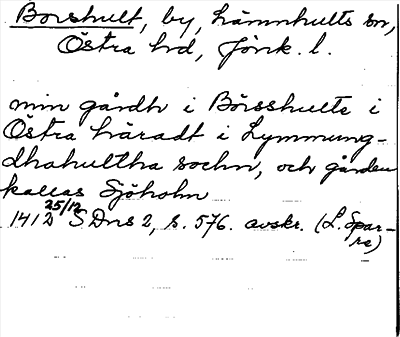 Borshult, by, Lämmhults sn,
Östra hd, Jönk. l.
min gårdh i Börsshulte i
Östra häradt i Lymmung-
dhahultha sochn, och gården
kallas Sjöholm
1412 25/12 SDns 2, s. 576. avskr. (L. Spar-
re)